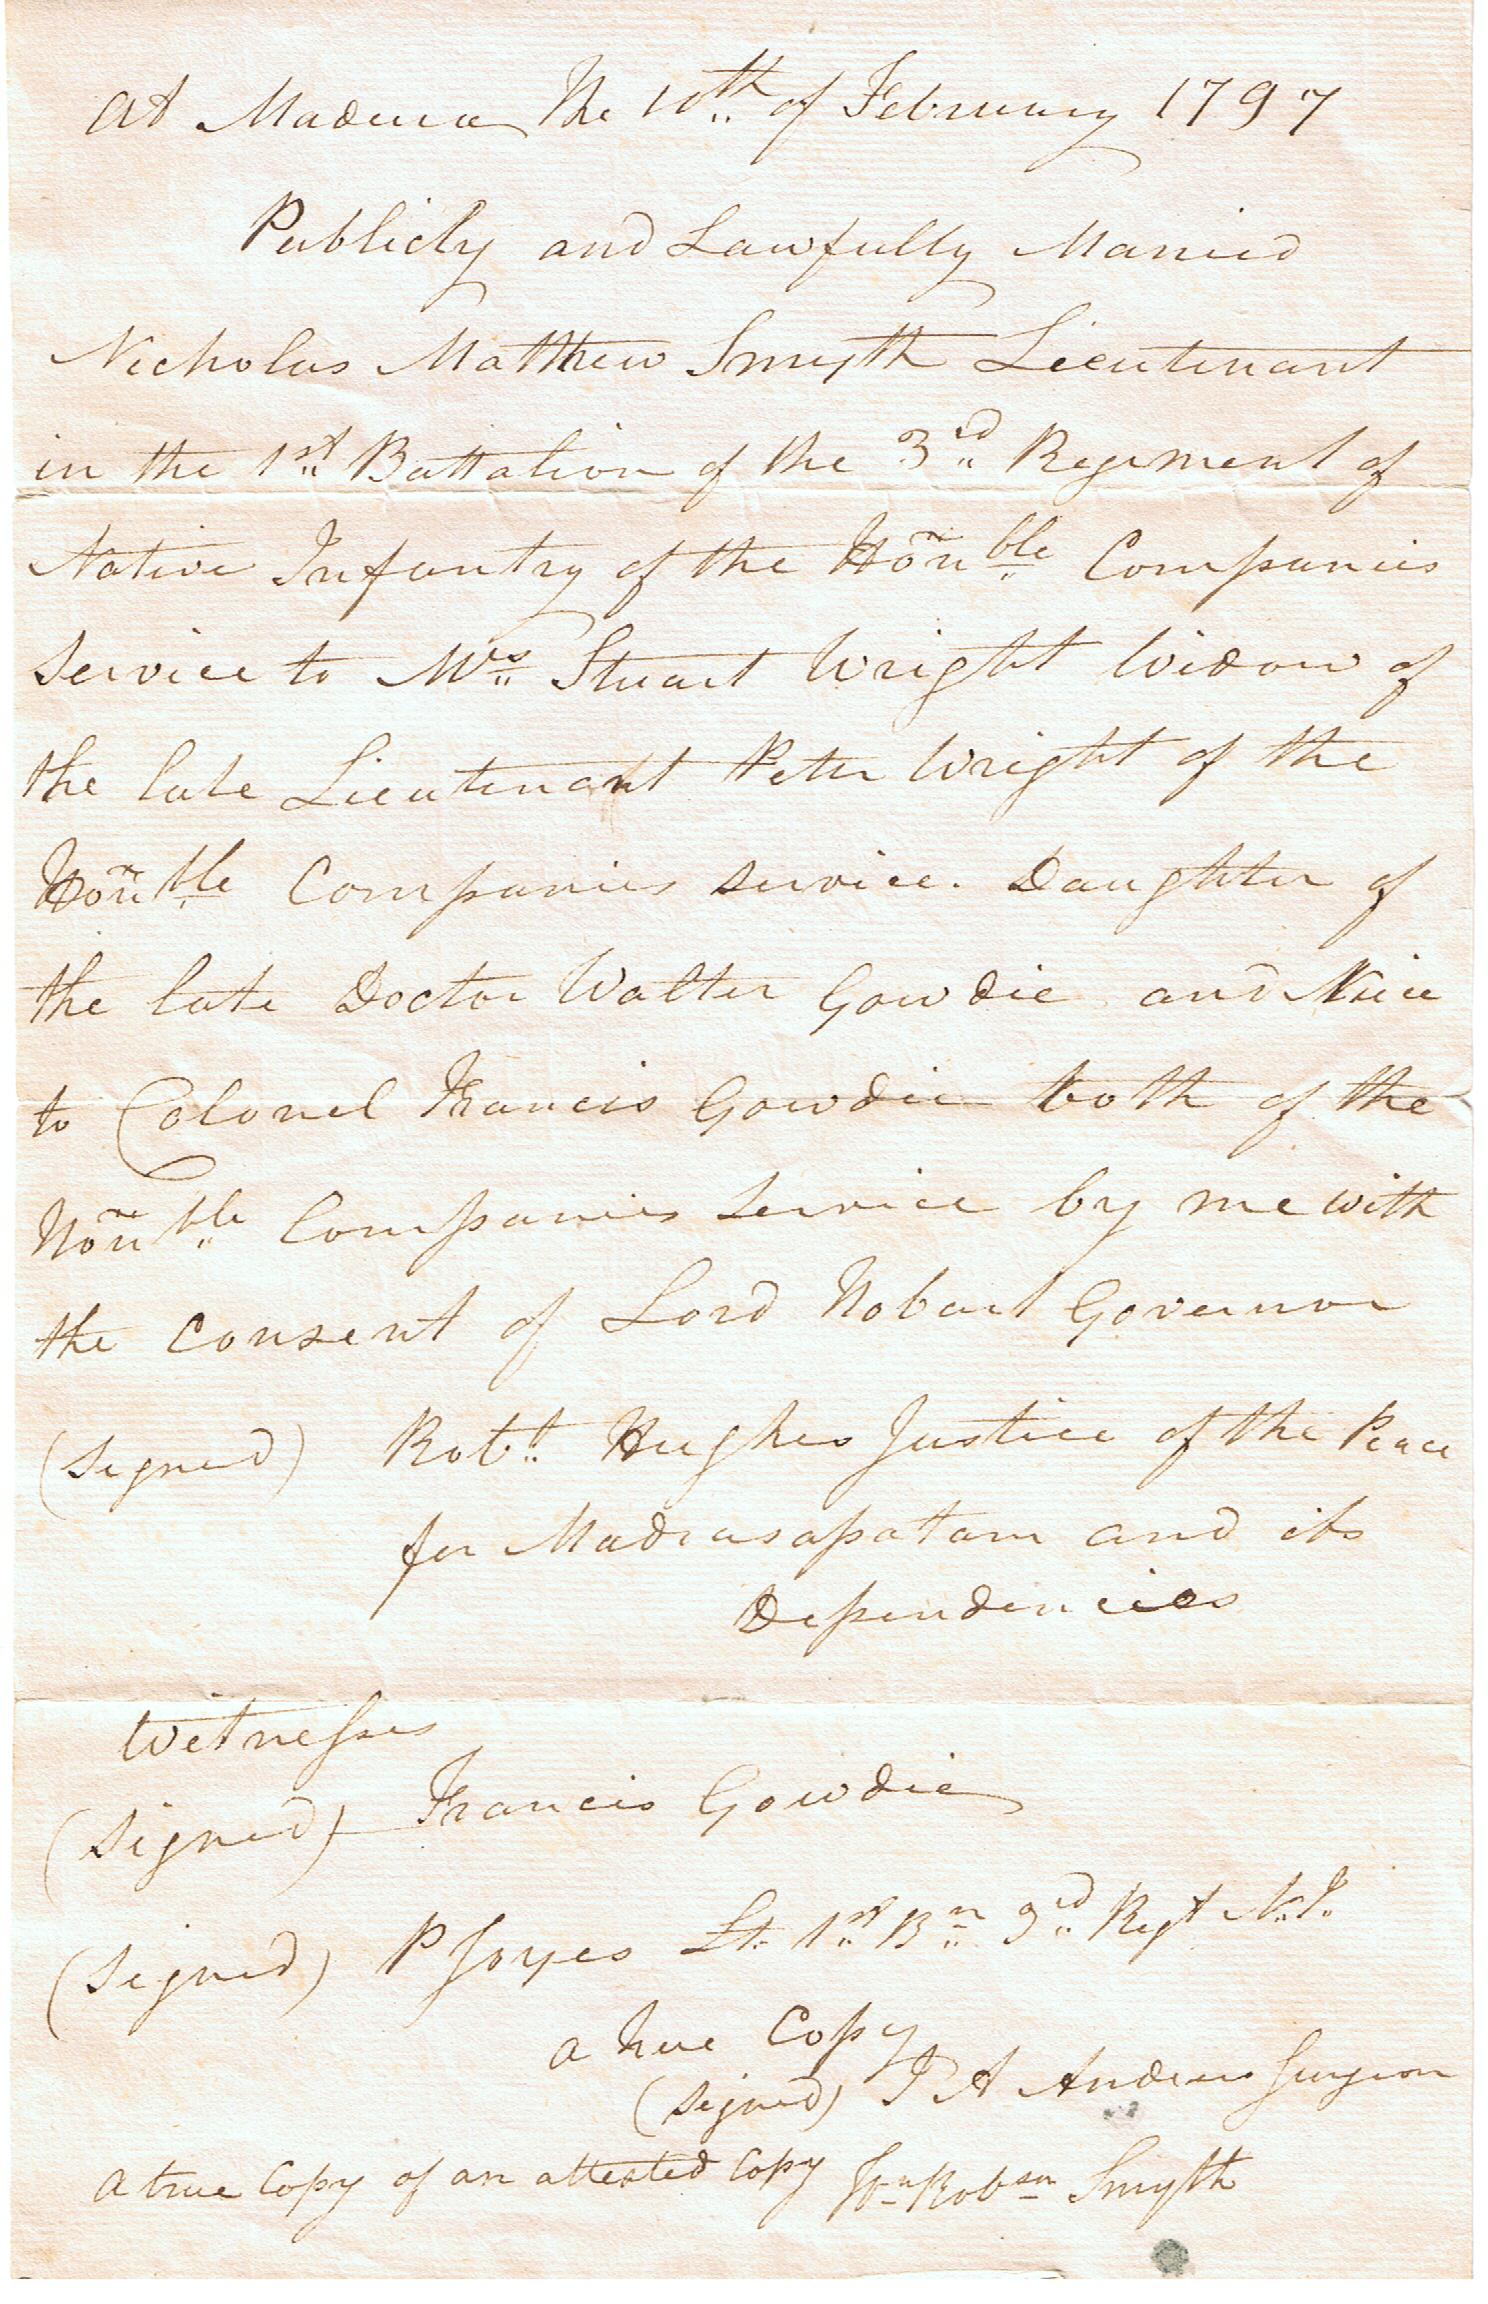 At Madura the 10th of February 1797
Publicly and Lawfully Married
Nicholas Matthew Smyth Lieutenant
in the 1st Battalion of the 3rd Regiment of
Native Infantry of the Honble Companies
Service to Mrs Stuart Wright Widow of
the late Lieutenant Peter Wright of the
Honble Companies service. Daughter of
the late Doctor Walter Gowdie and Niece
to Colonel Francis Gowdie both of the
Honble Companies Service by me with
the consent of Lord Hobart Governor
(Signed) Robt Hughes Justice of the Peace
for Madrasapatam and its
Dependencies
Witnesses
(Signed) Francis Gowdie
(Signed) P Lt. 1st Bn 3rd Regt N.I.
a true Copy
(Signed) J A Andrews Surgeon
a true Copy of an attested Copy Wm Robsn Smyth